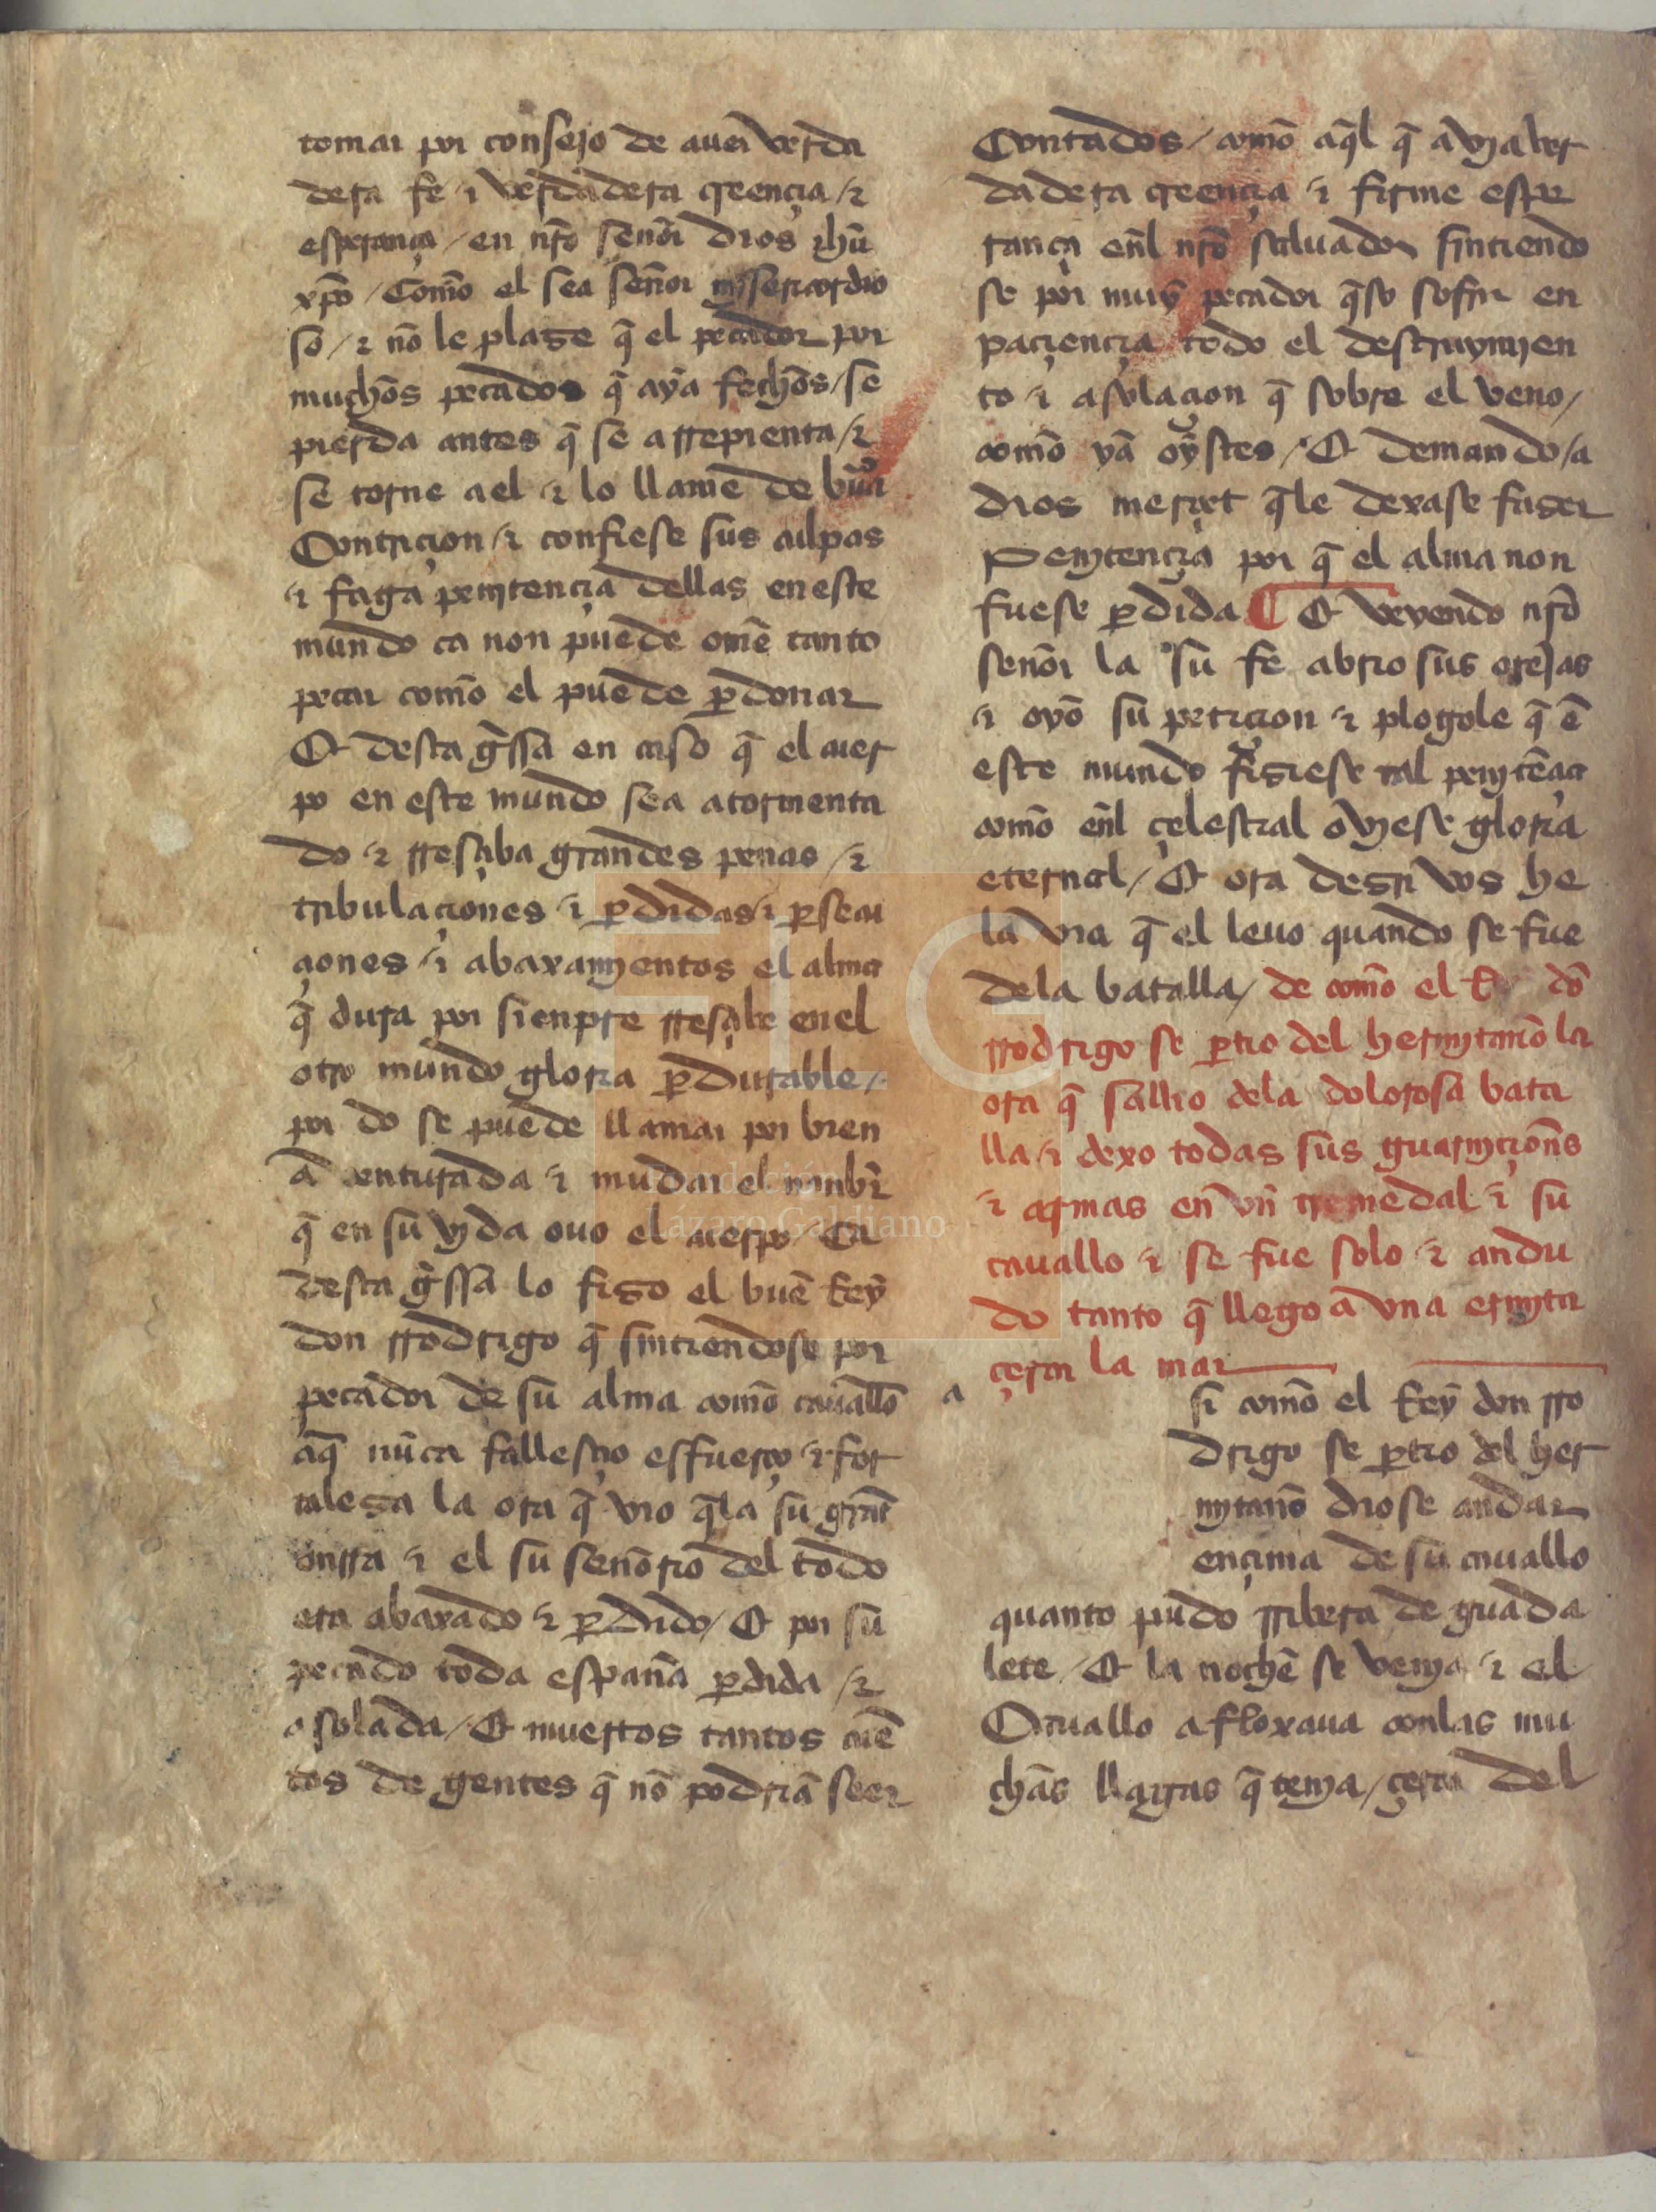 tomar por consejo de auer verda
dera fe ⁊ verdadera creençia / ⁊
esperança / en nr̃o señor dios ihũ
xp̃o / Com̃o el sea señor misericordio
so / ⁊ nõ le plase q̃ el pecador por
muchos pecados q̃ aya fechos / se
pierda antes q̃ se arrepienta / ⁊
se torne a el ⁊ lo llame de bũa
Contriçion / ⁊ confiese sus culpas
⁊ faga penitençia dellas en este
mundo ca non puede om̃e tanto
pecar com̃o el puede p̱donar
Et desta g̃ssa en caso q̃ el cuer
po en este mundo sea atormenta
do ⁊ rresçiba grandes penas / ⁊
tribulaçiones ⁊ p̱didas ⁊ p̱secu
çiones ⁊ abaxamyentos el alma
q̃ dura por sienpre rresçibe en el
otro mundo gloria p̱durable /
por do se puede llamar por bien
auenturada ⁊ mudar el nonbr̃
q̃ en su vida ouo el cuerpo Ca
desta g̃ssa lo fiso el buẽ Rey
don rrodrigo q̃ sintiendose por
pecador de su alma com̃o cauall̃o
aq̃ nũca fallesçio esfuerço ⁊ for
talesa la ora q̃ vio q̃la su grãt
onrra ⁊ el su señorio del todo
era abaxado ⁊ p̱dido / Et por su
pecado toda españa p̱dida / ⁊
asolada / Et muertos tantos cuẽ
tos de gentes q̃ nõ podriã seer
Contados / com̃o aq̃l q̃ auya ver
dadera creençia ⁊ firme espe
rança eñl nr̃o saluador sintiendo
se por muy pecador q̃so sofrir en
paçiençia todo el destruymyen
to ⁊ asolaçion q̃ sobre el veno /
com̃o ya oystes / Et demando / a
dios merçet q̃le dexase faser
Penytençia por q̃ el alma non
fuese p̱dida ¶ Et veyendo nr̃o
señor la su fe abrio sus orejas
⁊ oyo su petiçion ⁊ plogole q̃ ẽ
este mundo fisiese tal penytẽçia
com̃o eñl çelestrial ovyese gloria
eternal / Et ora desir vos he
la via q̃ el leuo quando se fue
dela batalla / de com̃o el Rey dõ
rrodrigo se p̱tio del hermytaño la
ora q̃ sallio dela dolorosa bata
lla ⁊ dexo todas sus guarnyçiones
⁊ armas en vn tremedal ⁊ su
cauallo ⁊ se fue solo ⁊ andu
do tanto q̃ llego a vna ermyta
çerca la mar
a
si com̃o el Rey don rro
drigo se p̱tio del her
mytaño diose andar
ençima de su cauallo
quanto pudo rribera de guada
lete / Et la noche se venya ⁊ el
Cauallo afloxaua conlas mu
chas llagas q̃ tenya / çerca del
Fundación
Lázaro Galdiano
FLG